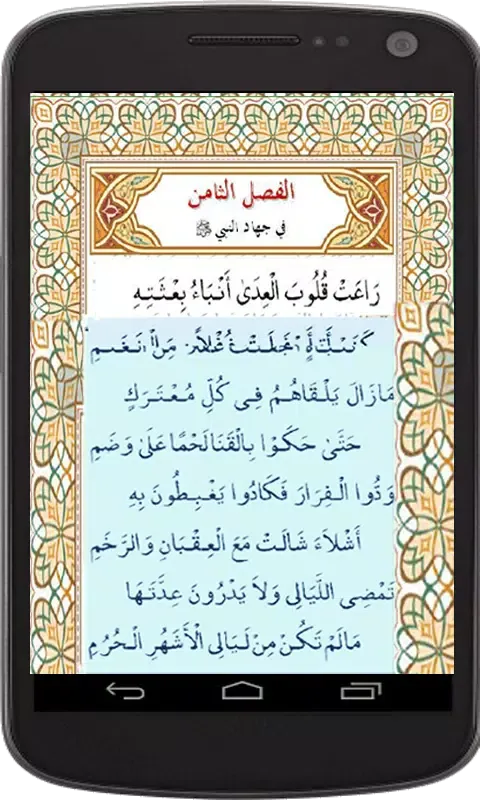 الفصل الثامن
في جهاد النبي ﷺ
رَاعَتْ قُلُوبَ الْعِدَىٰ أَنْبَاءُ بِعْثَتِهِ
كَنَبْأَةٍ أَجْفَلَتْ غُفْلًا مِنَ الْغَنَمِ
مَازَالَ يَلْقَاهُمُ فِي كُلِّ مُعْتَرَكٍ
حَتَّىٰ حَكَوْا بِالْقَنَا لَحْمًا عَلَىٰ وَضَمِ
وَدُّوا الْفِرَارَ فَكَادُوا يَغْبِطُونَ بِهِ
أَشْلَاءَ شَالَتْ مَعَ الْعِقْبَانِ وَالرَّخَمِ
تَمْضِى اللَّيَالِى وَلَا يَدْرُونَ عِدَّتَهَا
مَالَمْ تَكُنْ مِنْ لَيَالِى الْأَشْهُرِ الْحُرُمِ